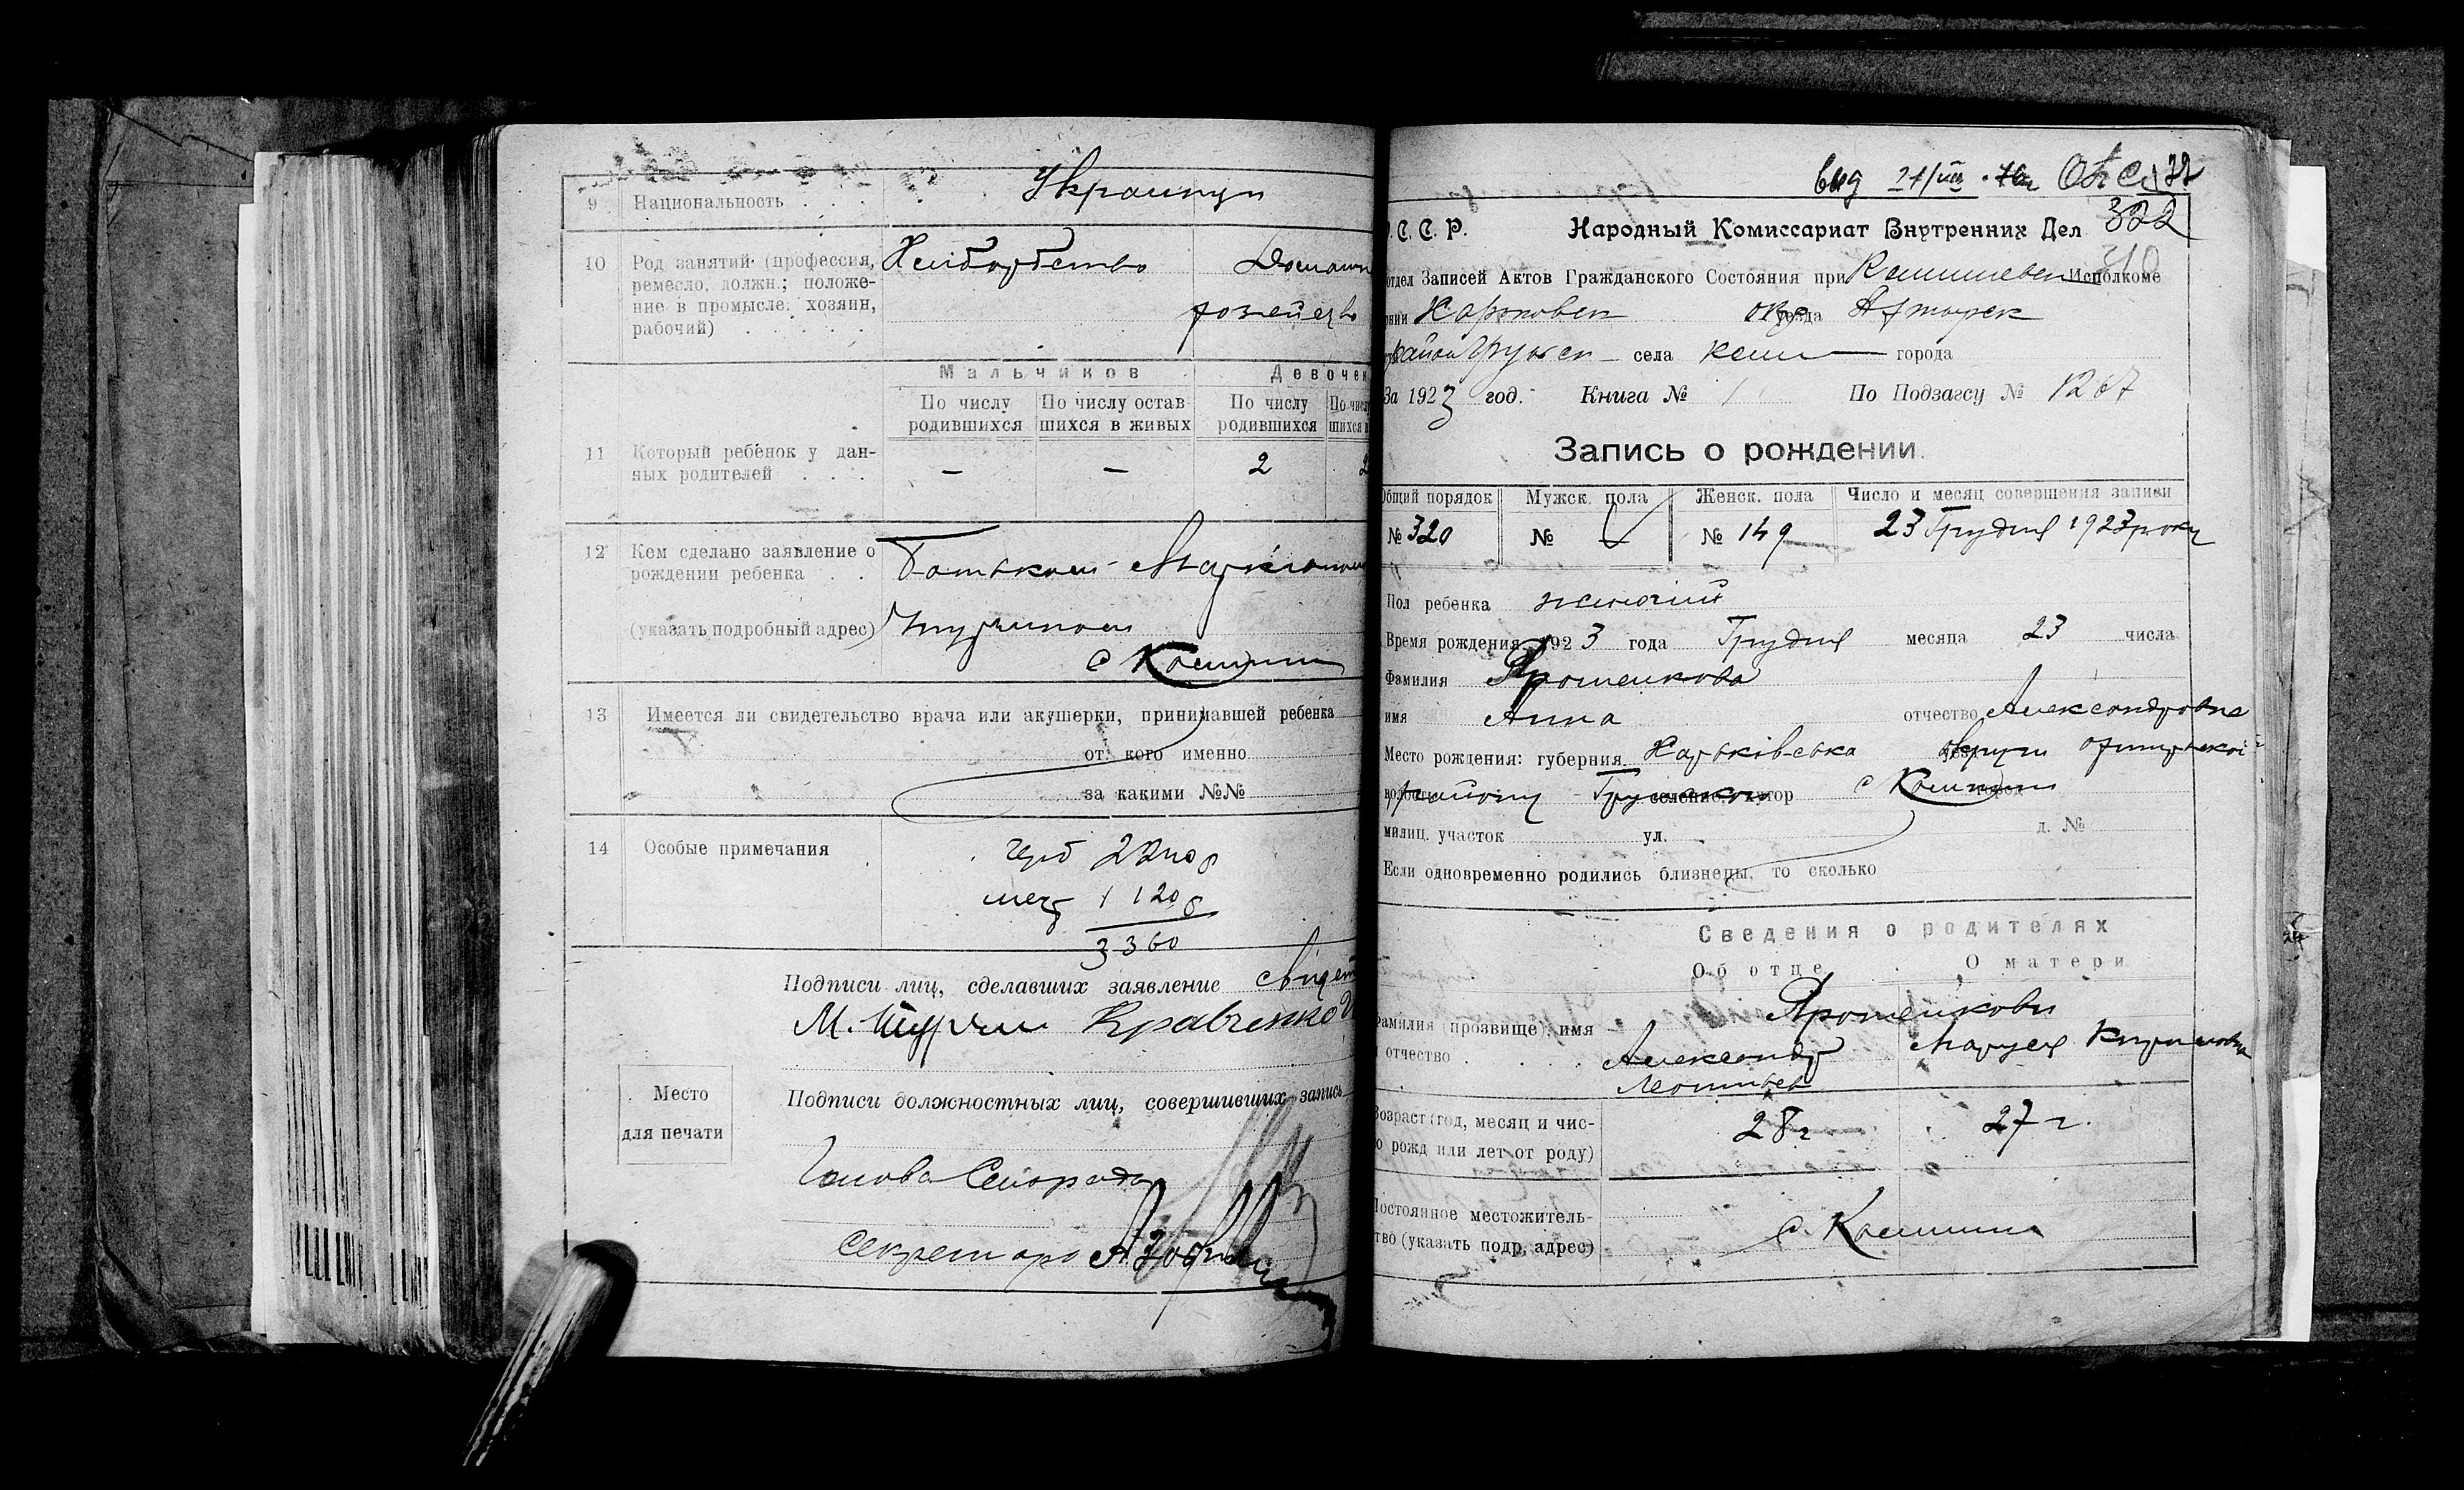 9 Национальность . . .
Украинци
10 Род занятий (профессия,
ремесло, должн.; положе-
ние в промысле: хозяин,
рабочий) . . . . .
Хлiборобство
Домашн
Мальчиков
Девочек
По числу
родившихся
По числу остав-
шихся в живых
По числу
родившихся
По числу
шихся в
11 Который ребенок у дан-
ных родителей . . .
— — 2 2
12 Кем сделано заявление о
рождении ребенка . .
(указать подробный адрес)
Батьком
с Комиши
13 Имеется ли свидетельство врача или акушерки, принимавшей ребенка
от кого именно
за какими №№
14 Особые примечания
герб 2240 р
1120 р
3360
Подписи лиц, сделавших заявление
М. Кравченко
Место
для печати
Подписи должностных лиц, совершивших запись
Голова Сельради
Секретарь
вид 21/VIII
322
310
.С.С.Р. Народный Комиссариат Внутренних Дел
отдел Записей Актов Гражданского Состояния при Комишевск Исполкоме
рнии Харковск окр уезда Ахтырск
район Грунск села Ком города
За 1923 год. Книга № 1 По Подзагсу № 1267
Запись о рождении.
Общий порядок Мужск. пола Женск. пола Число и месяц совершения записи
№ 320 № — № 149 23 Грудня 1923 року
Пол ребенка жиночий
Время рождения 1923 года Грудня месяца 23 числа
Фамилия Ярошенкова
имя Анна отчество Александровна
Место рождения: губерния Харькiвська округи
волость району селение, хутор с Комиши город
милиц. участок ул. д. №
Если одновременно родились близнецы, то сколько
Сведения о родителях
Об отце О матери
Фамилия (прозвище), имя
и отчество . . .
Ярошенкови
Александр
Леонтьев
Маруся Кириловна
Возраст (год, месяц и чис-
ло рожд или лет от роду)
28 г 27 г.
Постоянное местожитель-
ство (указать подр. адрес)
с. Комиши